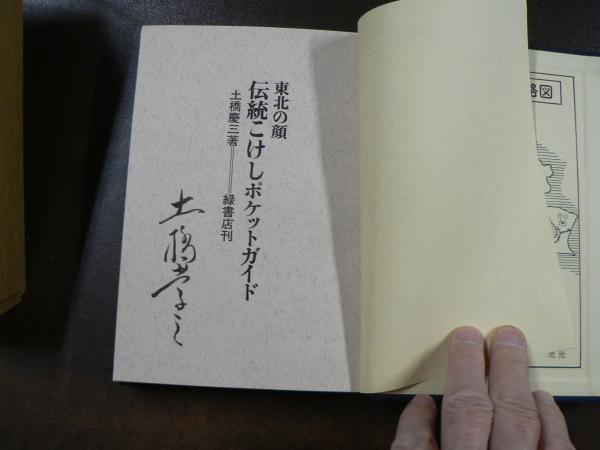 東北の顔
伝統こけしポケットガイド
土橋慶三著──緑書店刊
土橋慶三
略図